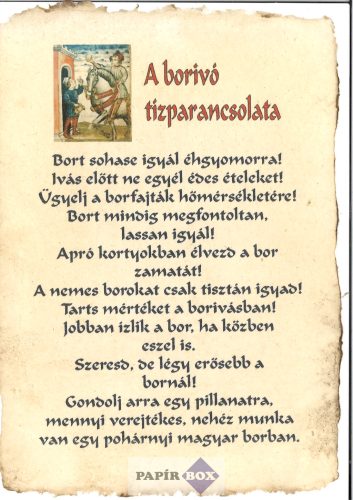 A borivó
tízparancsolata
Bort sohase igyál éhgyomorra!
Ivás előtt ne egyél édes ételeket!
Ügyelj a borfajták hőmérsékletére!
Bort mindig megfontoltan,
lassan igyál!
Apró kortyokban élvezd a bor
zamatát!
A nemes borokat csak tisztán igyad!
Tarts mértéket a borivásban!
Jobban ízlik a bor, ha közben
eszel is.
Szeresd, de légy erősebb a
bornál!
Gondolj arra egy pillanatra,
mennyi verejtékes, nehéz munka
van egy pohárnyi magyar borban.
PAPÍR BOX